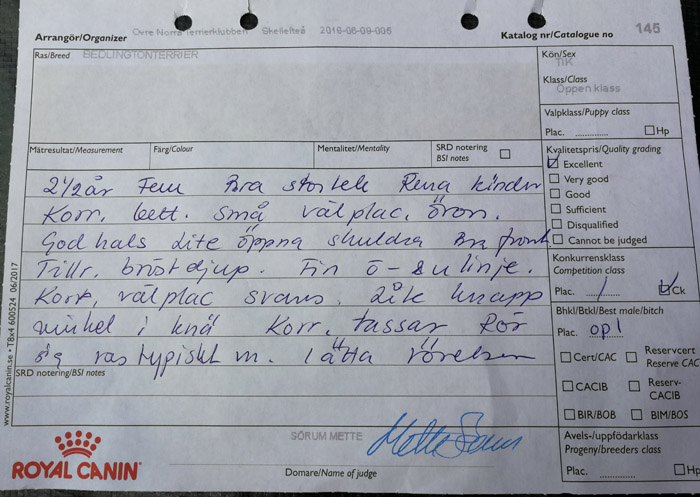 Arrangör/Organizer
Övre Norra Terrierklubben Skellefteå 2018-06-09-005
Katalog nr/Catalogue no
145
Ras/Breed
BEDLINGTONTERRIER
Kön/Sex
TIK
Klass/Class
Öppen klass
Valpklass/Puppy class
Plac. ............ Hp
Mätresultat/Measurement
Färg/Colour
Mentalitet/Mentality
SRD notering
BSI notes
Kvalitetspris/Quality grading
Excellent
Very good
Good
Sufficient
Disqualified
Cannot be judged
2 1/2 år Fem Bra storlek Rena kinder
Korr. bett. små välplac. öron.
God hals Lite öppna skuldra Bra front
Tillr. bröstdjup. Fin ö-su linje.
Korr, välplac svans. Lite knapp
vinkel i knä Korr. tassar Rör
sig rastypiskt m. lätta rörelser
Konkurrensklass
Competition class
Plac. 1 Ck
Bhkl/Btkl/Best male/bitch
Plac. opl
Cert/CAC
Reservcert
Reserve CAC
CACIB
Reserv-
CACIB
BIR/BOB
BIM/BOS
SRD notering/BSI notes
Avels-/uppfödarklass
Progeny/breeders class
Plac. ............ Hp
SÖRUM METTE
Mette Sörum
Domare/Name of judge
ROYAL CANIN
www.royalcanin.se • TBx4 600524 06/2017